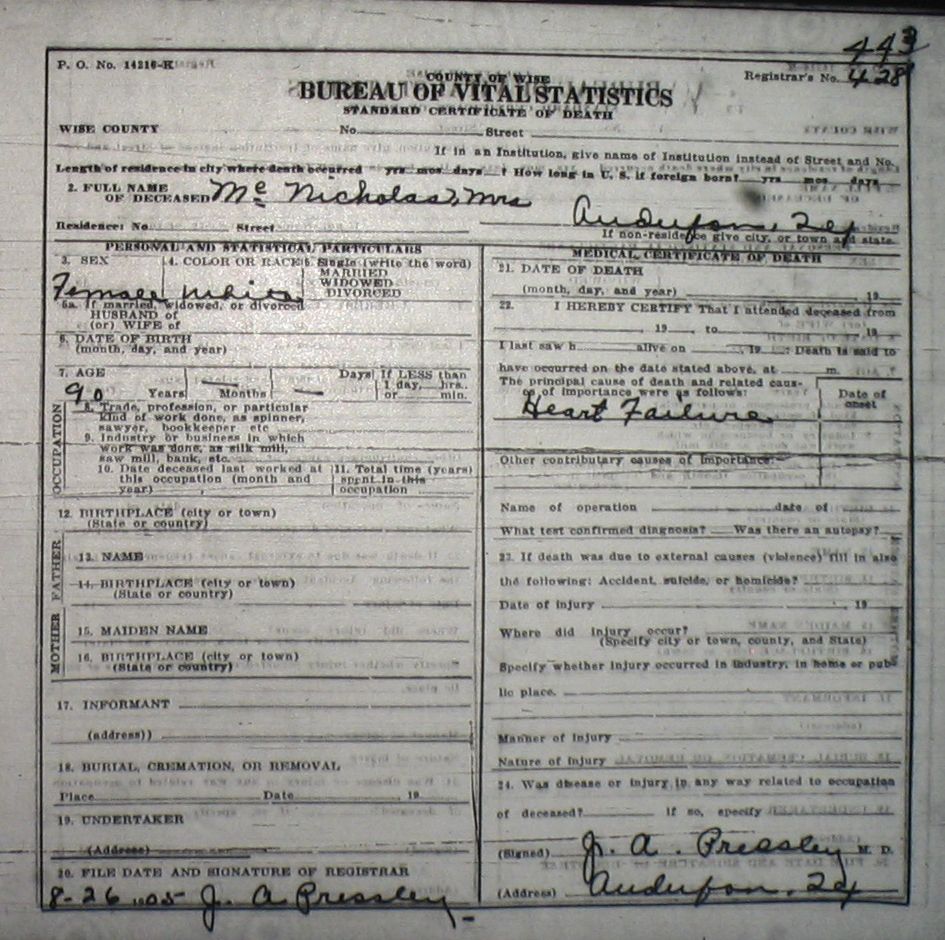 443
P. O. No. 14216-K
COUNTY OF WISE
Registrar's No. 428
BUREAU OF VITAL STATISTICS
STANDARD CERTIFICATE OF DEATH
WISE COUNTY No. Street
If in an Institution, give name of Institution instead of Street and No.
Length of residence in city where death occurred yrs mos days ? How long in U. S. if foreign born? yrs mos days
2. FULL NAME
OF DECEASED Mc Nicholas, Mrs
Residence: No Street
If non-residence give city, or town and state.
PERSONAL AND STATISTICAL PARTICULARS
3. SEX 4. COLOR OR RACE 5. Single (write the word)
MARRIED
WIDOWED
DIVORCED
Female White
5a. If married, widowed, or divorced
HUSBAND of
(or) WIFE of
6. DATE OF BIRTH
(month, day, and year)
7. AGE Days If LESS than
1 day, hrs.
90 Years — Months — or min.
OCCUPATION
8. Trade, profession, or particular
kind of work done, as spinner,
sawyer, bookkeeper etc
9. Industry or business in which
work was done, as silk mill,
saw mill, bank, etc.
10. Date deceased last worked at
this occupation (month and
year)
11. Total time (years)
spent in this
occupation
12. BIRTHPLACE (city or town)
(State or country)
FATHER
13. NAME
14. BIRTHPLACE (city or town)
(State or country)
MOTHER
15. MAIDEN NAME
16. BIRTHPLACE (city or town)
(State or country)
17. INFORMANT
(address))
18. BURIAL, CREMATION, OR REMOVAL
Place Date 19
19. UNDERTAKER
(Address)
20. FILE DATE AND SIGNATURE OF REGISTRAR
8-26 1905 J. A Pressley
MEDICAL CERTIFICATE OF DEATH
21. DATE OF DEATH
(month, day, and year) 19
22. I HEREBY CERTIFY That I attended deceased from
19 , to 19
I last saw h alive on , 19 : Death is said to
have occurred on the date stated above, at m.
The principal cause of death and related caus-
es of importance were as follows:
Date of
onset
Heart Failure
Other contributary causes of Importance:
Name of operation date of
What test confirmed diagnosis? Was there an autopsy?
23. If death was due to external causes (violence) fill in also
the following: Accident, suicide, or homicide?
Date of injury 19
Where did injury occur?
(Specify city or town, county, and State)
Specify whether injury occurred in industry, in home or pub-
lic place.
Manner of injury
Nature of injury
24. Was disease or injury in any way related to occupation
of deceased? if so, specify
(Signed) J. A. Pressley M. D.
(Address)